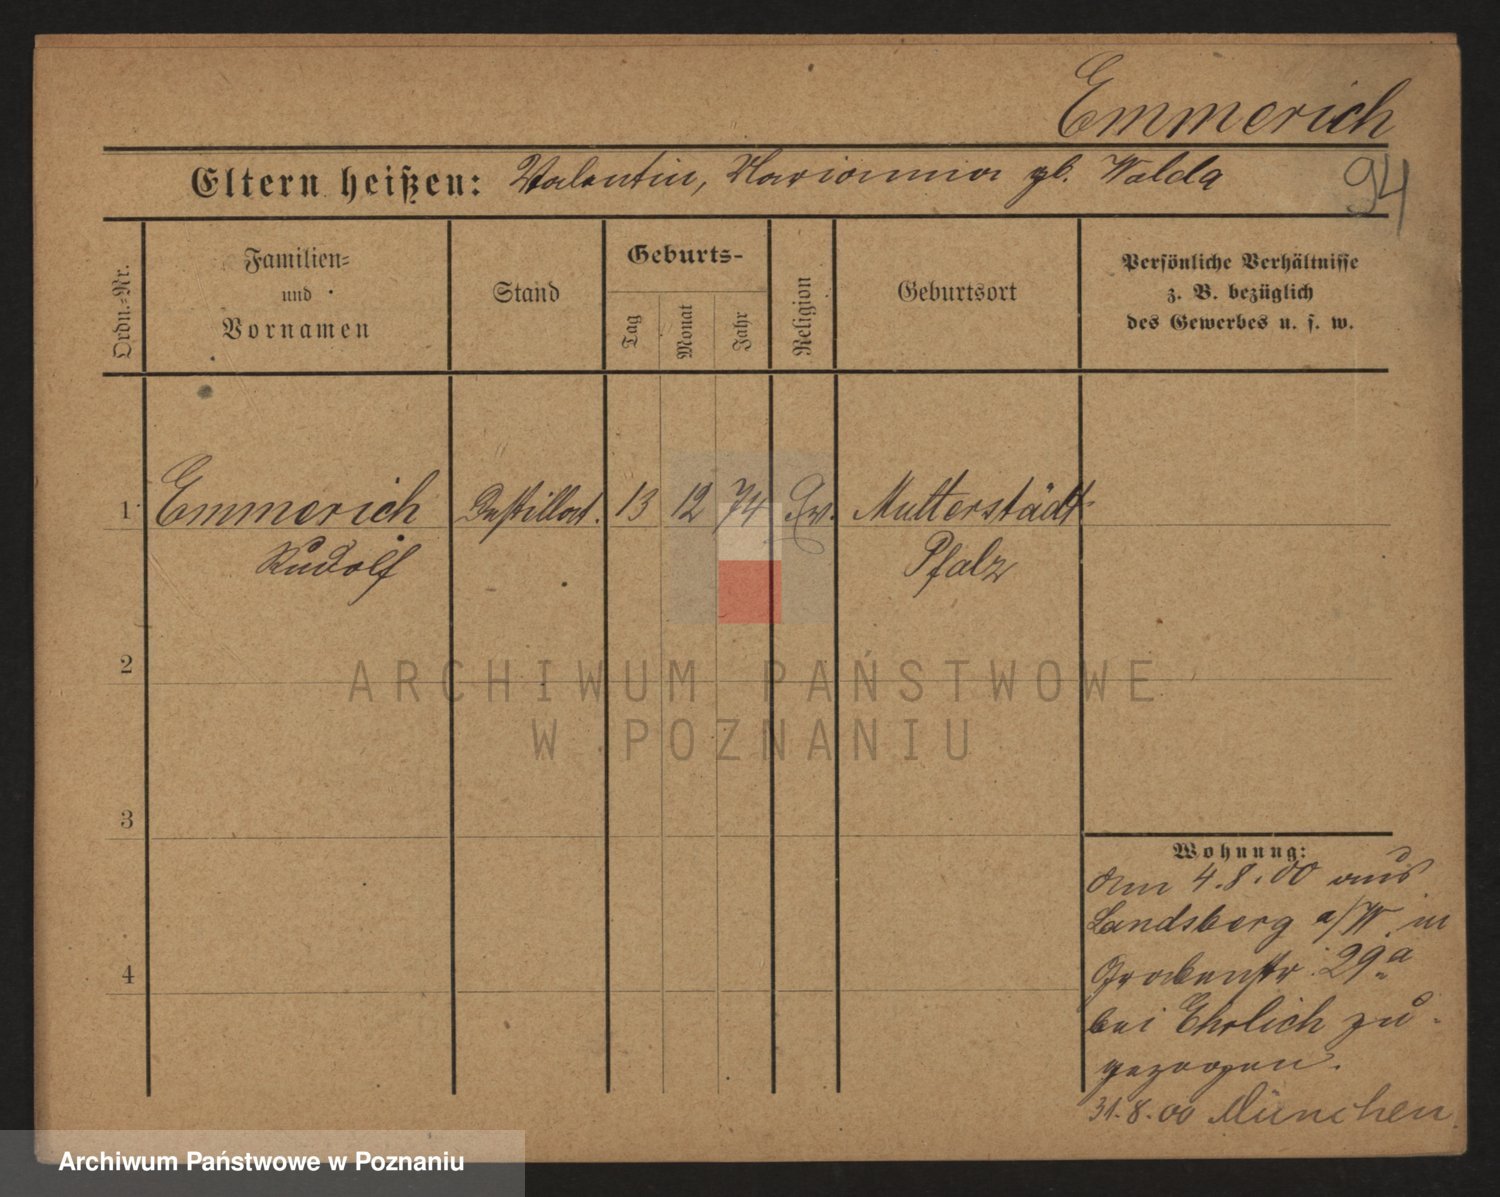 Emmerich
94
Eltern heißen: Valentin, Marianna gb. Walda
Ordn.-Nr.
Familien-
und
Vornamen
Stand
Geburts-
Tag
Monat
Jahr
Religion
Geburtsort
Persönliche Verhältnisse
z. B. bezüglich
des Gewerbes u. s. w.
1 Emmerich Destillat. 13 12 74 Ev. Mutterstädt
Rudolf Pfalz
2
3
4
Wohnung:
Am 4.8.00 aus
Landsberg a/W. in
Grabenstr. 29a
bei Ehrlich zu-
gezogen.
31.8.00 München
ARCHIWUM PAŃSTWOWE
W POZNANIU
Archiwum Państwowe w Poznaniu